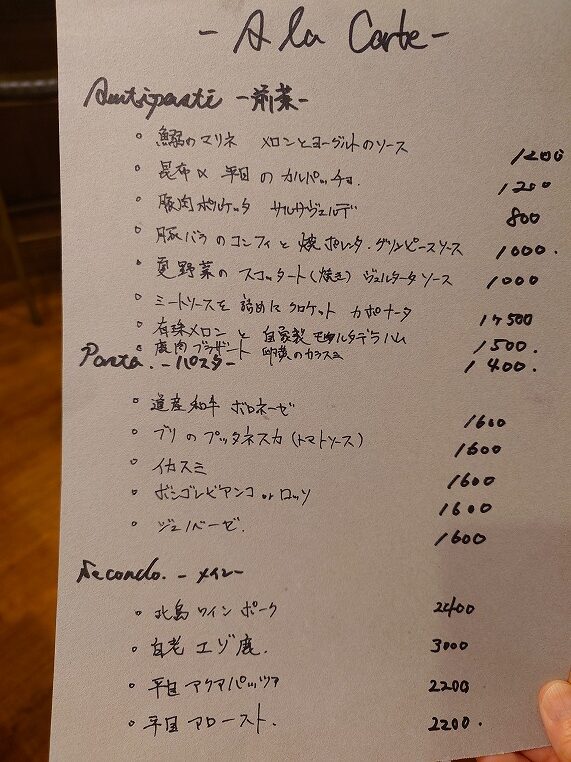 - A la Carte -
Antipasti -前菜-
。鰯のマリネ メロンとヨーグルトのソース 1200
。昆布〆平目のカルパッチョ. 1200
。豚肉ポルケッタ サルサヴェルデ 800
。豚バラのコンフィと焼ポレンタ.グリンピースソース 1000.
。夏野菜のスコッタート(焼き) ヴェルタータソース 1000
。ミートソースを詰めたクロケット カポナータ 1500
。有珠メロンと自家製モルタデラハム 1500.
。鹿肉ブラザート 卵黄のカラスミ 1400.
Pasta. -パスタ-
。道産和牛ボロネーゼ 1600
。ブリのプッタネスカ(トマトソース) 1600
。イカスミ 1600
。ボンゴレビアンコ or ロッソ 1600
。ジェノベーゼ. 1600
Secondo. -メイン-
。北島ワインポーク 2400
。白老エゾ鹿. 3000
。平目アクアパッツァ 2200
。平目アロースト. 2200.